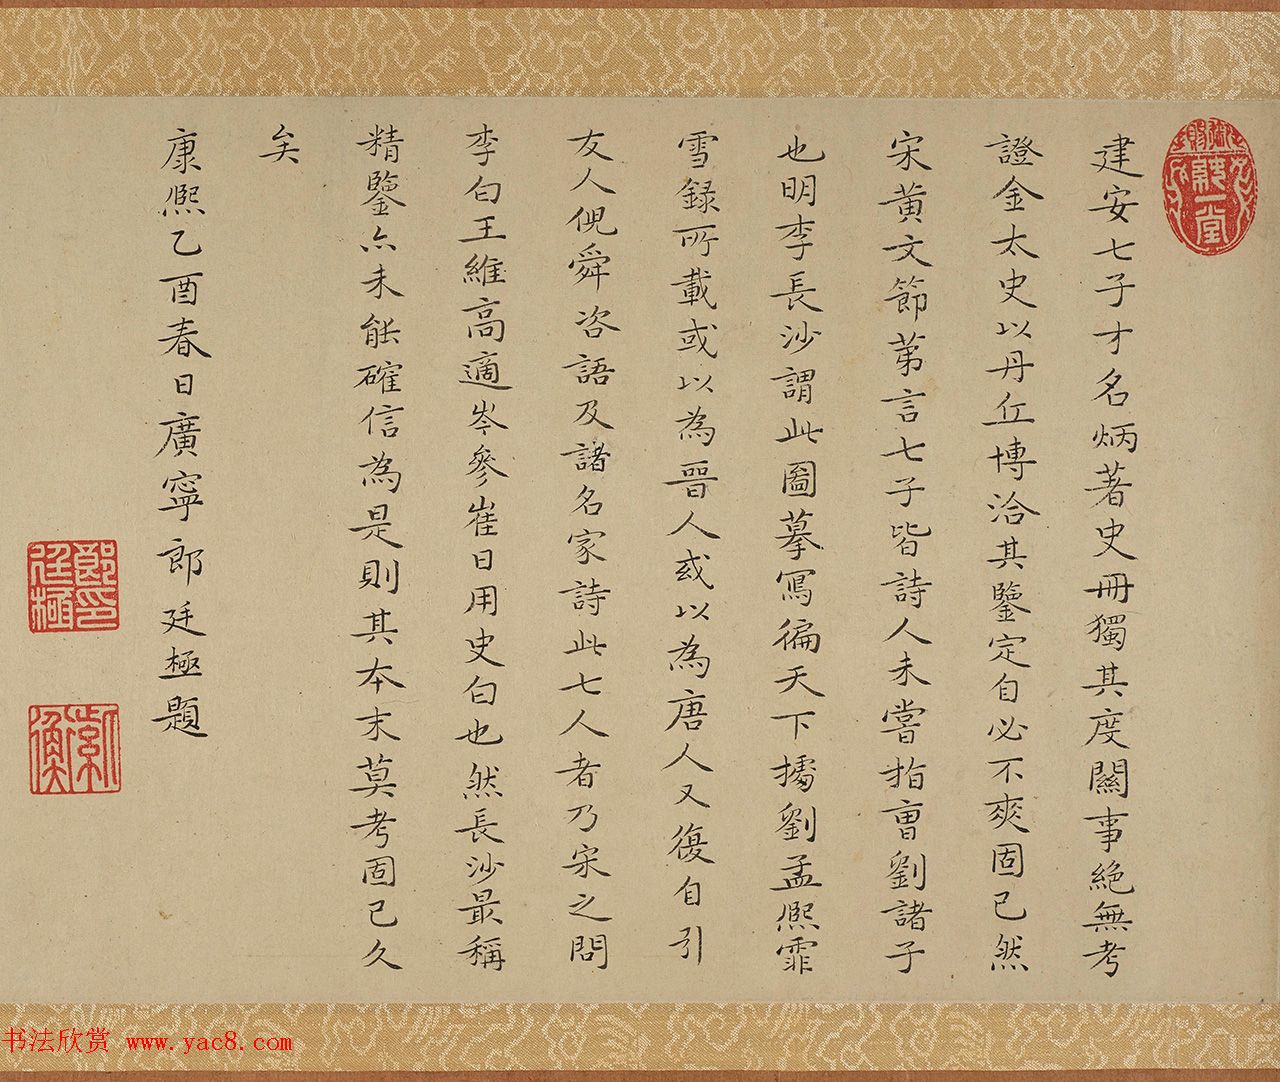 建安七子才名炳著史冊獨其度關事絕無考
證金太史以丹丘博洽其鑒定自必不爽固已然
宋黄文節苐言七子皆詩人未嘗指曹劉諸子
也明李長沙謂此圖摹寫徧天下據劉孟熈霏
雪録所載或以為晉人或以為唐人又復自引
友人倪舜咨語及諸名家詩此七人者乃宋之問
李白王維高適岑參崔日用史白也然長沙最稱
精鑒亦未能確信為是則其本末莫考固已久
矣
康熈乙酉春日廣寧郎廷極題
郎廷極印
紫衡
书法欣赏 www.yac8.com